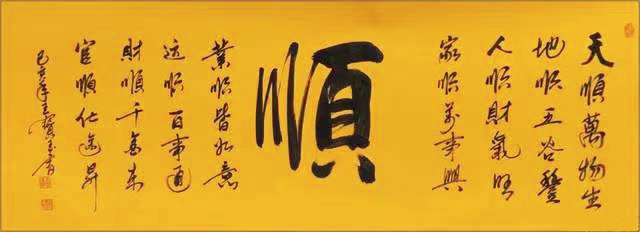 天順萬物生
地順五谷豐
人順財氣旺
家順萬事興
順
業順皆如意
运順百事通
財順千金來
官順仕途昇
己亥年王寶